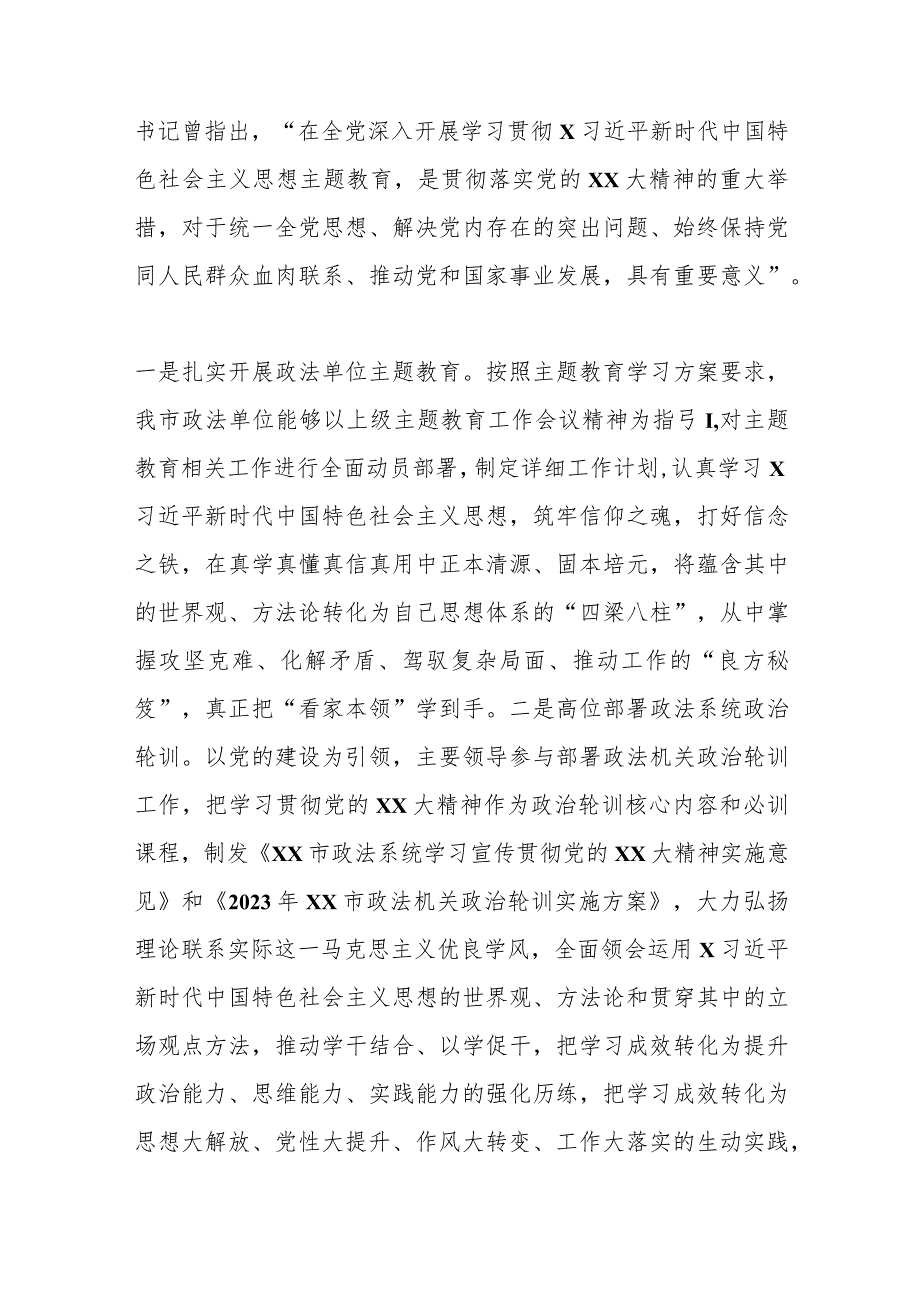 书记曾指出，“在全党深入开展学习贯彻X习近平新时代中国特
色社会主义思想主题教育，是贯彻落实党的XX大精神的重大举
措，对于统一全党思想、解决党内存在的突出问题、始终保持党
同人民群众血肉联系、推动党和国家事业发展，具有重要意义”。
一是扎实开展政法单位主题教育。按照主题教育学习方案要求，
我市政法单位能够以上级主题教育工作会议精神为指弓I,对主题
教育相关工作进行全面动员部署,制定详细工作计划,认真学习X
习近平新时代中国特色社会主义思想，筑牢信仰之魂，打好信念
之铁，在真学真懂真信真用中正本清源、固本培元，将蕴含其中
的世界观、方法论转化为自己思想体系的“四梁八柱”，从中掌
握攻坚克难、化解矛盾、驾驭复杂局面、推动工作的“良方秘
笈”，真正把“看家本领”学到手。二是高位部署政法系统政治
轮训。以党的建设为引领，主要领导参与部署政法机关政治轮训
工作，把学习贯彻党的XX大精神作为政治轮训核心内容和必训
课程，制发《XX市政法系统学习宣传贯彻党的XX大精神实施意
见》和《2023年XX市政法机关政治轮训实施方案》，大力弘扬
理论联系实际这一马克思主义优良学风，全面领会运用X习近平
新时代中国特色社会主义思想的世界观、方法论和贯穿其中的立
场观点方法，推动学干结合、以学促干，把学习成效转化为提升
政治能力、思维能力、实践能力的强化历练，把学习成效转化为
思想大解放、党性大提升、作风大转变、工作大落实的生动实践，